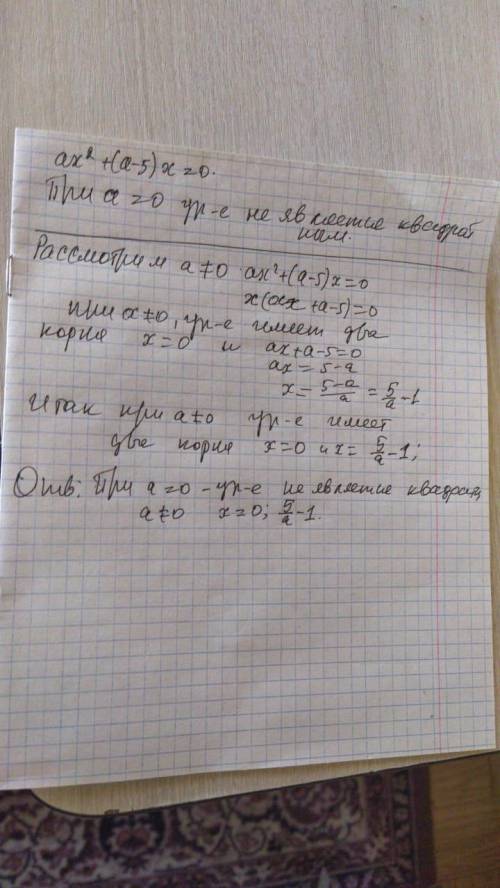 ax²+(a-5)x=0.
При a=0 ур-е не является квадрат
ным.
Рассмотрим a≠0 ax²+(a-5)x=0
x(ax+a-5)=0
при a≠0, ур-е имеет два
корня x=0 и ax+a-5=0
ax=5-a
x=\frac{5-a}{a}=\frac{5}{a}-1
Итак при a≠0 ур-е имеет
два корня x=0 и x=\frac{5}{a}-1;
Отв: При a=0 - ур-е не является квадратн
a≠0 x=0; \frac{5}{a}-1.